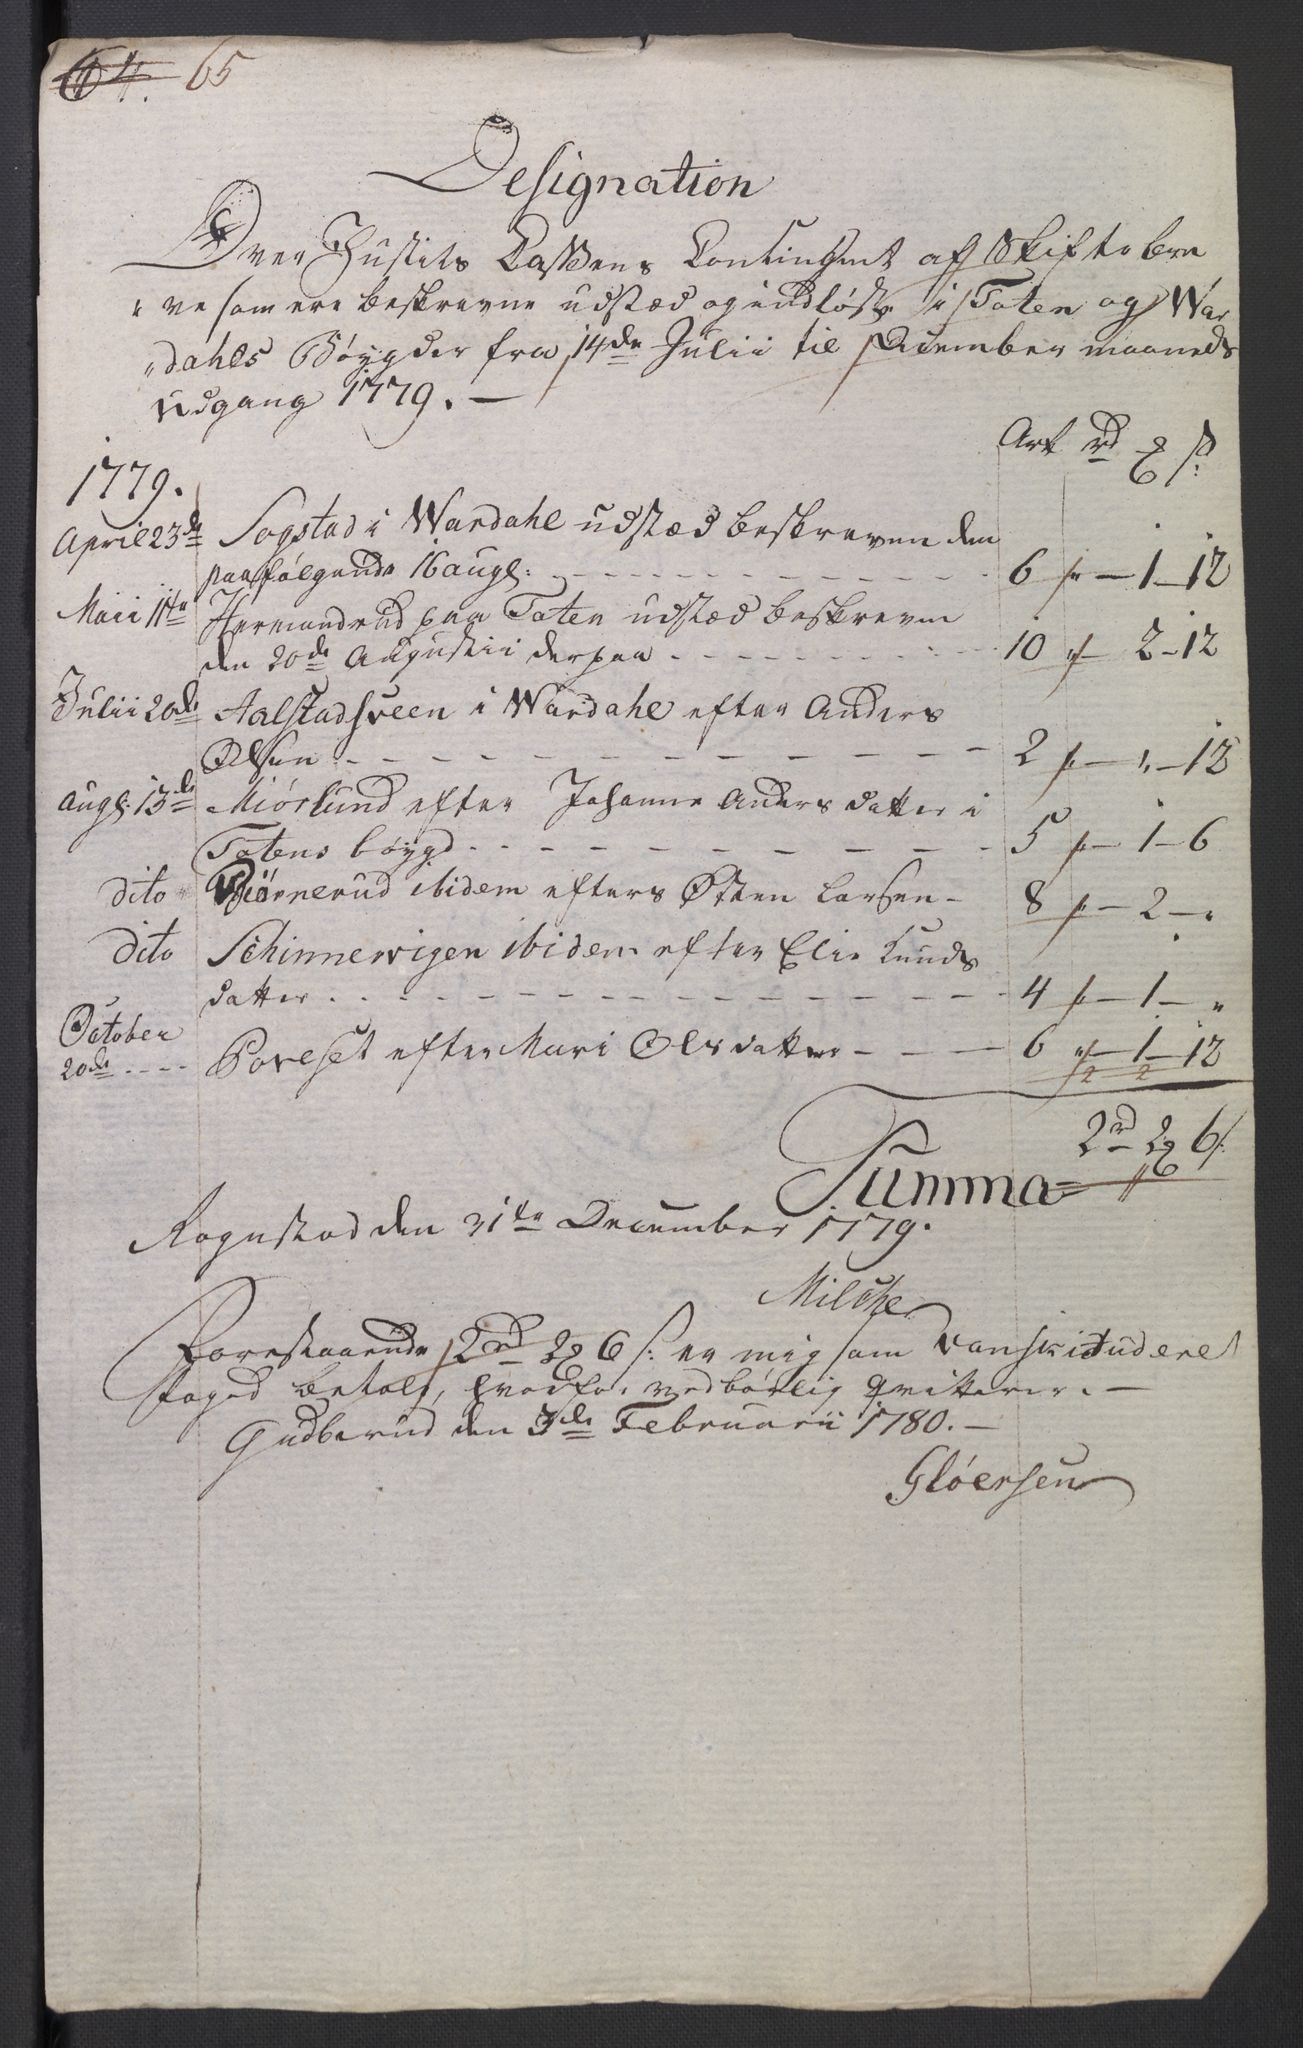 64. 65
Designation
Over Justits Cassens Contingent af Skifte bre
ve som ere beskrevne udstæd og indløste i Toten og War
dahls Bøygder fra 14de Julii til December maaneds
udgang 1779. —
Ark rd ß:
1779.
April 23de Sogstad i Wardahl udstæd beskreven den
paafølgende 16 augl: 6 — 1 — 12
Maii 11te Hermandrud paa Toten udstæd beskreven
den 20de Augustii derpaa 10 2 — 12
Julii 20de Aalstadsveen i Wardahl efter Anders
Olsen 2 — " — 12
Augl: 13de Miørlund efter Johanne Anders datter i
Totens bøygd 5 — 1 — 6
dito Biørnerud ibidem efters Østen Larsen — 8 — 2 — "
dito Schinnervigen ibidem efter Elie Knuds
datter 4 — 1 — "
October
20de Poveset efter Mari Ols datter — 6 — 1 — 12
2 2
Summa 2rd 2 6ß:
Rognstad den 31te December 1779.
Milche
Forestaaende 2rd 2 6 ß: er mig som Constitueret
foged betalt, hvorfor vedbørlig qvitterer. —
Gudberud den 3de Februarii 1780. —
Gløersen